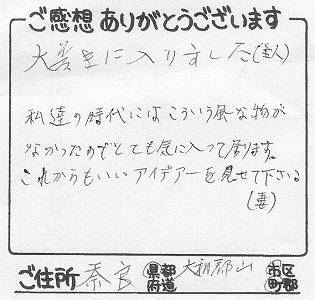 ご感想ありがとうございます
大変気に入りました(主人)
私達の時代にはこういう風な物が
なかったのでとても気に入って居ります。
これからもいいアイデアーを見せて下さい
(妻)
ご住所 奈良 都道府県 大和郡山 市区町郡